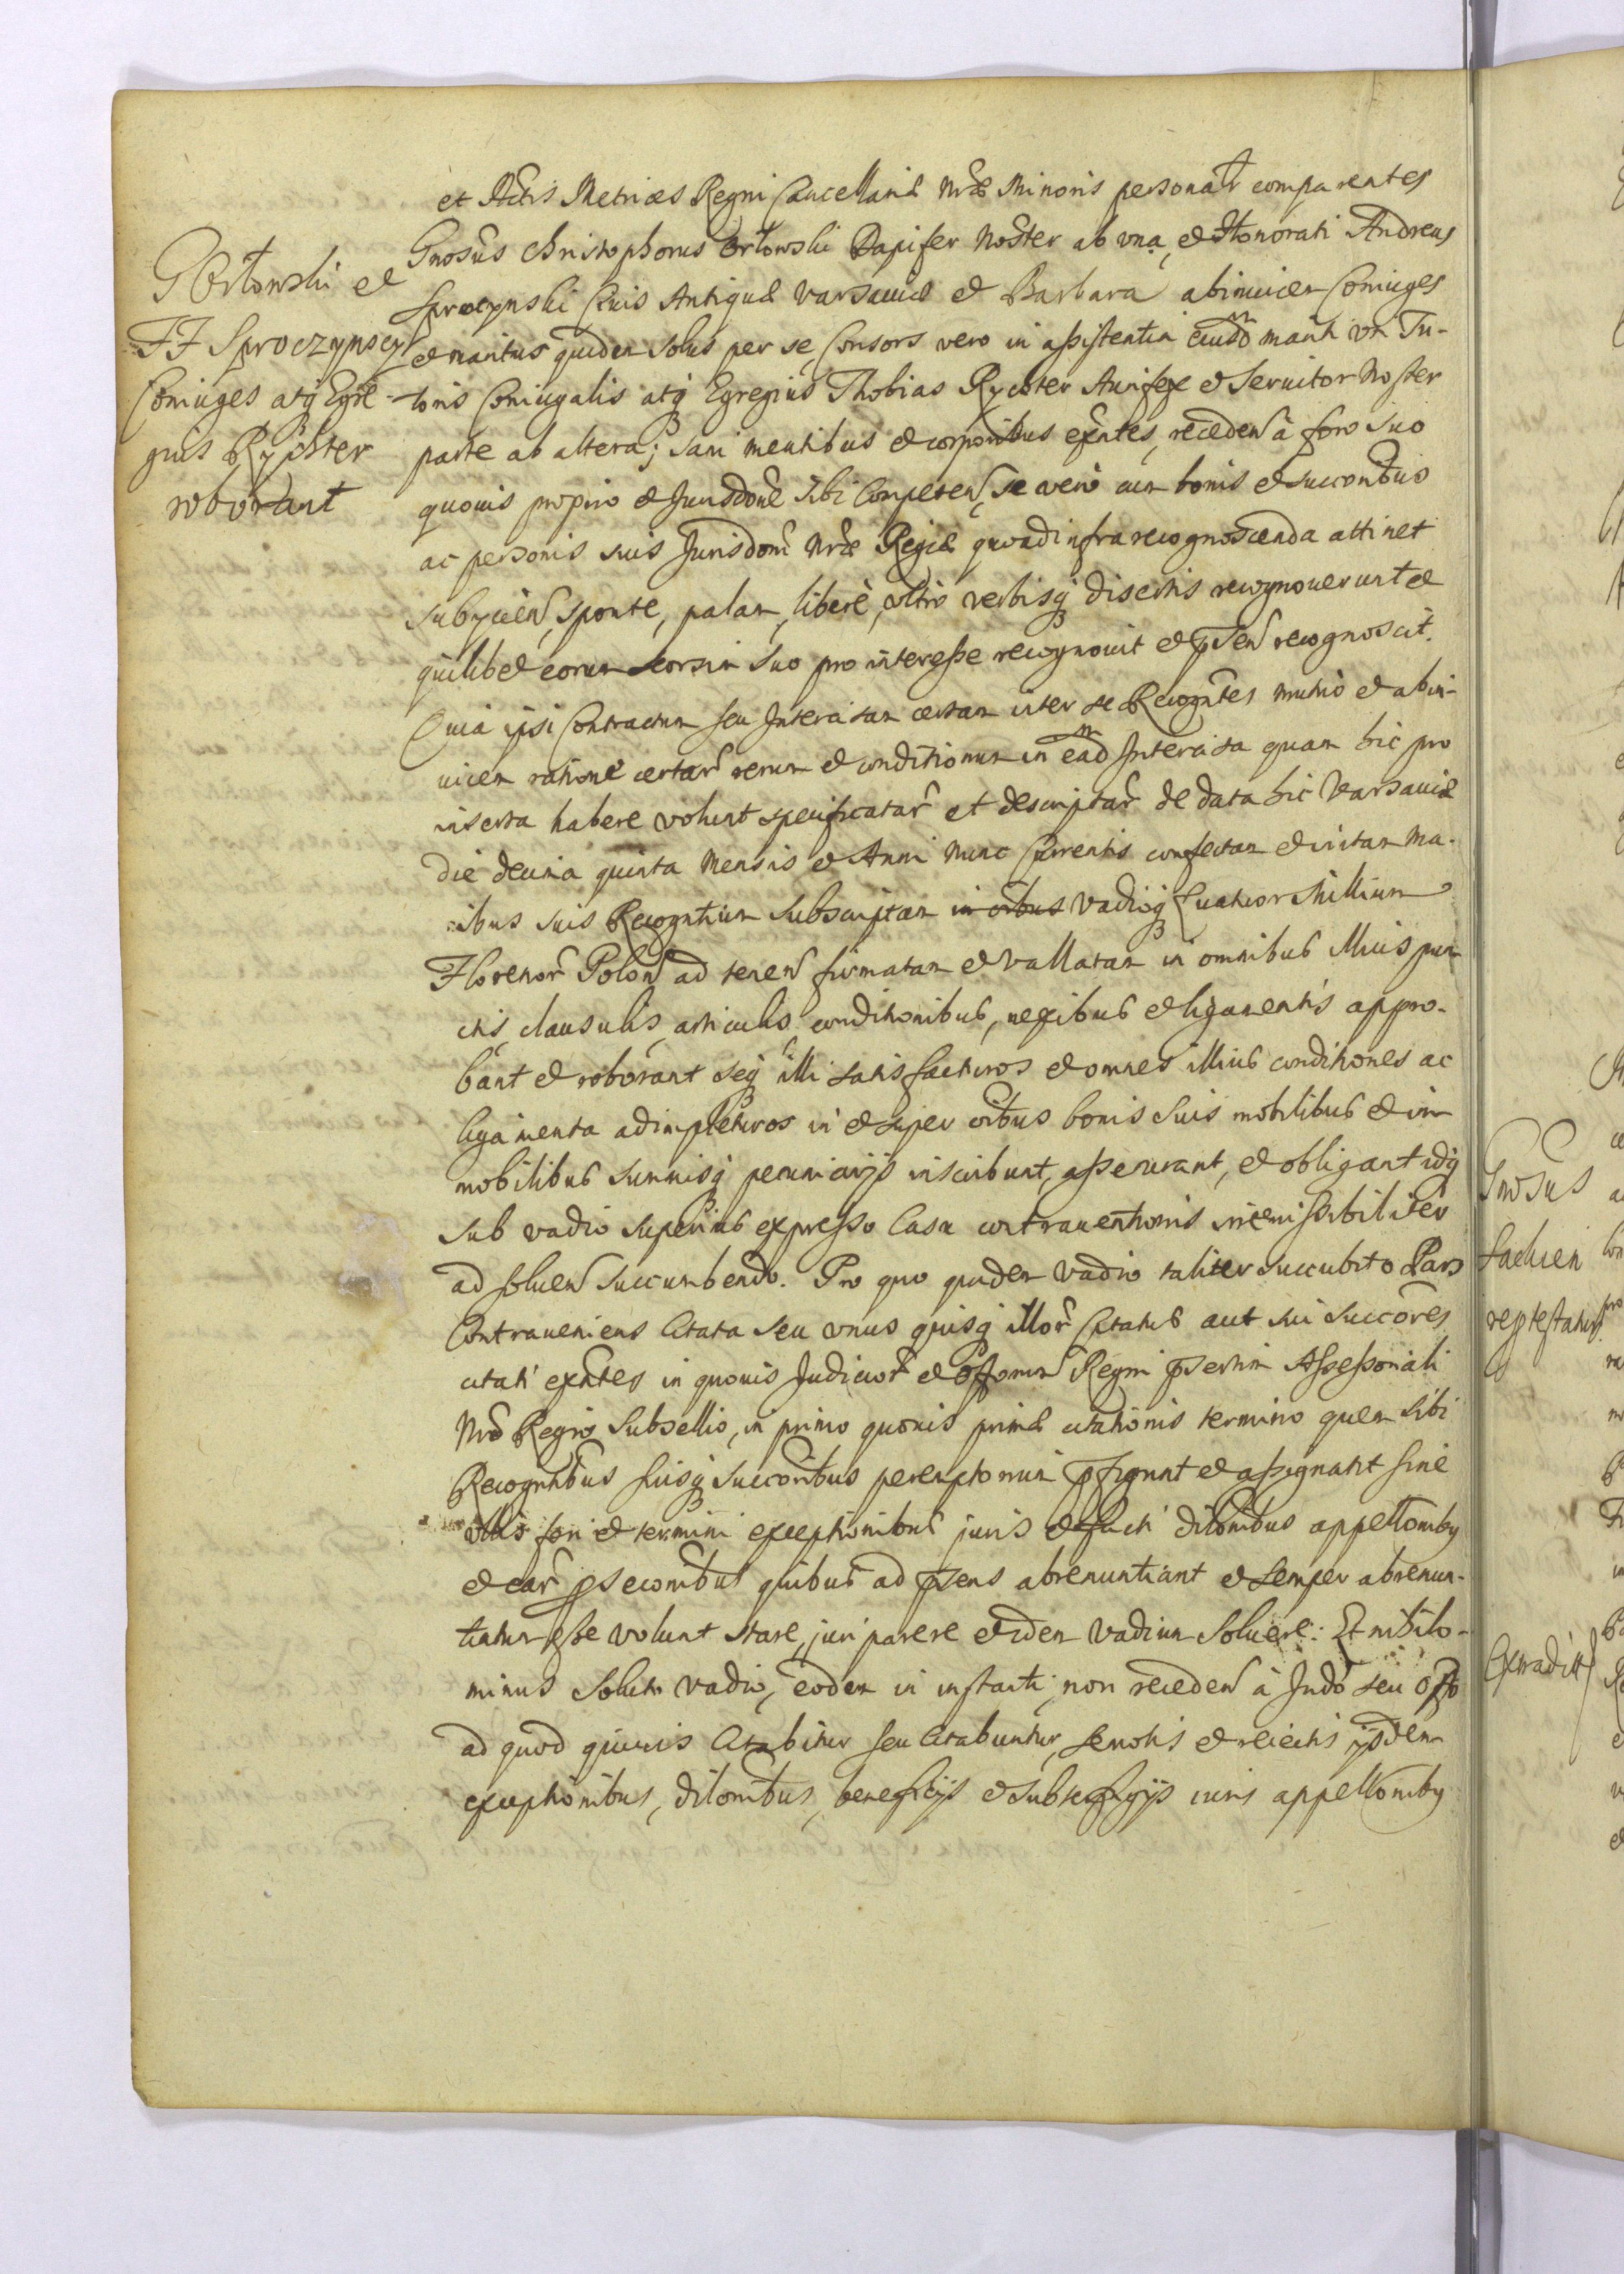 et Actis Metrices Regni Cancellariæ Nræ Minoris personalr comparentes
G Orłowski et
FF Sproczynscy
Coniuges atq Egre-
gius Rychter
roborant
Gnosus Christophorus Orłowski Dapifer Noster ab vna, et Honorati Andreas
Sproczynski Civis Antiquæ Varsauiæ et Barbara abinuicem Coniuges
et maritus quidem solus per se, Consors vero in assistentia eiusdm mariti vti Tu-
toris Coniugalis atq Egregius Thobias Rychter Aurifex et Seruitor Noster
parte ab altera; sani mentibus et corporibus exntes, receden à foro suo
quouis proprio et Jurisdone sibi Competen, se vero cum bonis et succoribus
ac personis suis Jurisdoni Nræ Regiæ quoad infra recognoscenda attinet
subycien, sponte, palam, liberè, vltro verbisq disertis recognouerunt et
quilibet eorum seorsim suo pro interesse recognouit et pnsen recognoscit.
Quia ipsi Contractum seu Intercisam certam inter se Recogntes mutuo et abin-
uicem ratione certar rerum et conditionum in eadm Intercisa quam hic pro
inserta habere volunt specificatar et descriptar de data hic Varsauiæ
die decima quinta Mensis et Anni Nunc Currentis confectam et initam ma-
nibus suis Recogntium subscriptam in oibus vadioq Quatuor Millium
Florenor Polon ad tenen firmatam et vallatam in omnibus illius pun-
ctis, clausulis, articulis conditionibus, nexibus et ligamentis appro-
bant et roborant seq illi satisfacturos et omnes illius conditiones ac
ligamenta adimpleturos in et super oibus bonis suis mobilibus et im-
mobilibus summisq pecuniarijs inscribunt, assecurant, et obligant idq
sub vadio superius expresso Casu contrauentionis irremissibiliter
ad soluen succumbendo. Pro quo quidem vadio taliter succubito Pars
Contraueniens Citata seu vnus quisq illor Citatus aut sui succores
citati exntes in quouis Judicior et Offorum Regni psertim Assessoriali
Nro Regio Subsellio, in primo quouis primæ citationis termino quem sibi
Recogntibus suisq succoribus peremptorium pfigunt et assignant sine
vllis fori et termini exceptionibus juris et facti dilonibus appellonibq
et ear psecoribus quibus ad psens abrenuntiant et semper abrenun-
tiatum esse volunt stare, juri parere et idem vadium soluere: Et nihilo-
minus soluto vadio, eodem in instanti, non receden à Judo seu Offo
ad quod quiuis Citabitur seu Citabuntur, semotis et reiectis ijsdem
exceptionibus, dilonibus, beneficijs et subterfugijs iuris appellonibq
Gnosus
Tachien
reptestatur
Extradit